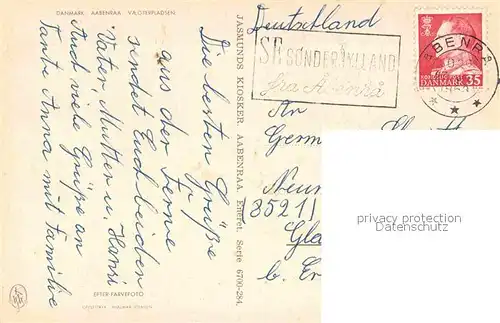 DANMARK AABENRAA VAGTERPLADSEN
Die besten Grüße
aus der Ferne
sendet Euch beiden
Vater, Mutter u. Hansi
Auch viele Grüße an
Tante Anna mit Familie
EFTER FARVEFOTO
JASMUNDS KIOSKER AABENRAA. Eneret. Serie 6700-284.
Deutschland
SE SØNDERJYLLAND
fra Åbenrå
ÅBENRÅ
DANMARK 35
An
Germ
Neun
85211
Gla
b. Er
privacy protection
Datenschutz